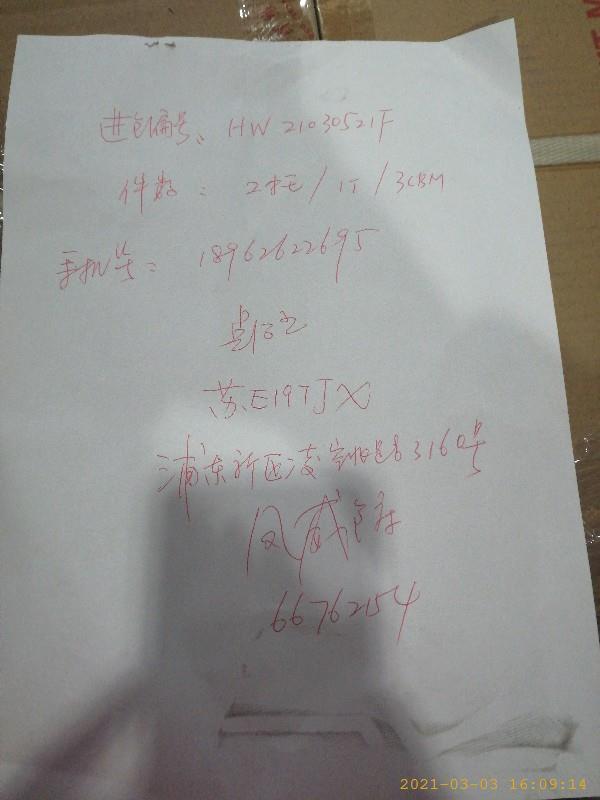 进仓编号: HW21030521F
件数: 2托/1T/3CBM
手机号: 18962622695
苏E19TJX
浦东新区凌空 3160号
凤威仓库
66762154
2021-03-03 16:09:14